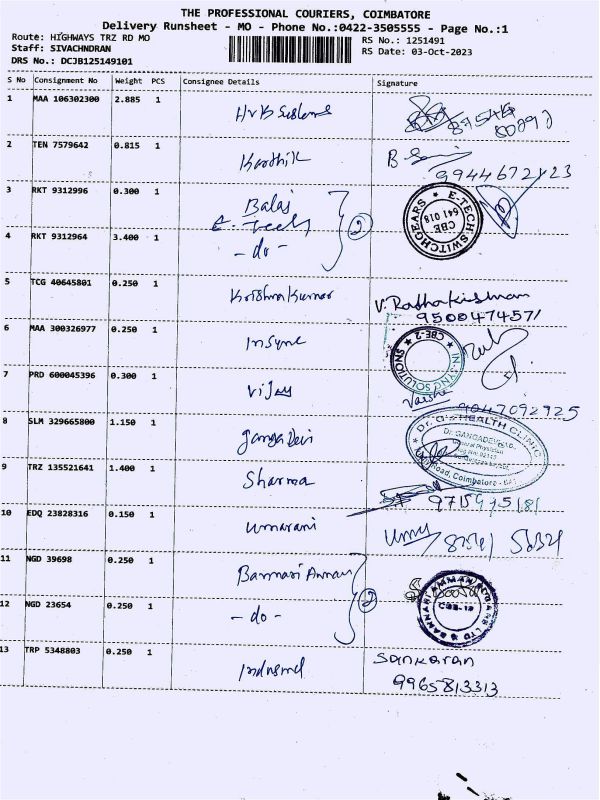 THE PROFESSIONAL COURIERS, COIMBATORE
Delivery Runsheet - MO - Phone No.:0422-3505555 - Page No.:1
Route: HIGHWAYS TRZ RD MO RS No.: 1251491
Staff: SIVACHNDRAN RS Date: 03-Oct-2023
DRS No.: DCJB125149101
S No Consignment No Weight PCS Consignee Details Signature
1 MAA 106302300 2.885 1
2 TEN 7579642 0.815 1 Karthik
9944672123
3 RKT 9312996 0.300 1 Balaj
E. Tech 2
E-TECH SWITCHGEARS ★ CBE 641 018
4 RKT 9312964 3.400 1 - do -
5 TCG 40645801 0.250 1 Krishna Kumar V. Radhakrishnan
9500474571
6 MAA 300326977 0.250 1 Insync
IN-SYNC SOLUTIONS ★ CBE-2 ★
7 PRD 600045396 0.300 1 Vijay
9047092925
8 SLM 329665800 1.150 1 Ganga Devi
Dr. G's HEALTH CLINIC
Road, Coimbatore
9 TRZ 135521641 1.400 1 Sharma
9715975181
10 EDQ 23828316 0.150 1 Umarani
11 NGD 39698 0.250 1 Bannari Amman 2
12 NGD 23654 0.250 1 - do -
13 TRP 5348803 0.250 1 Sankaran
9965813313